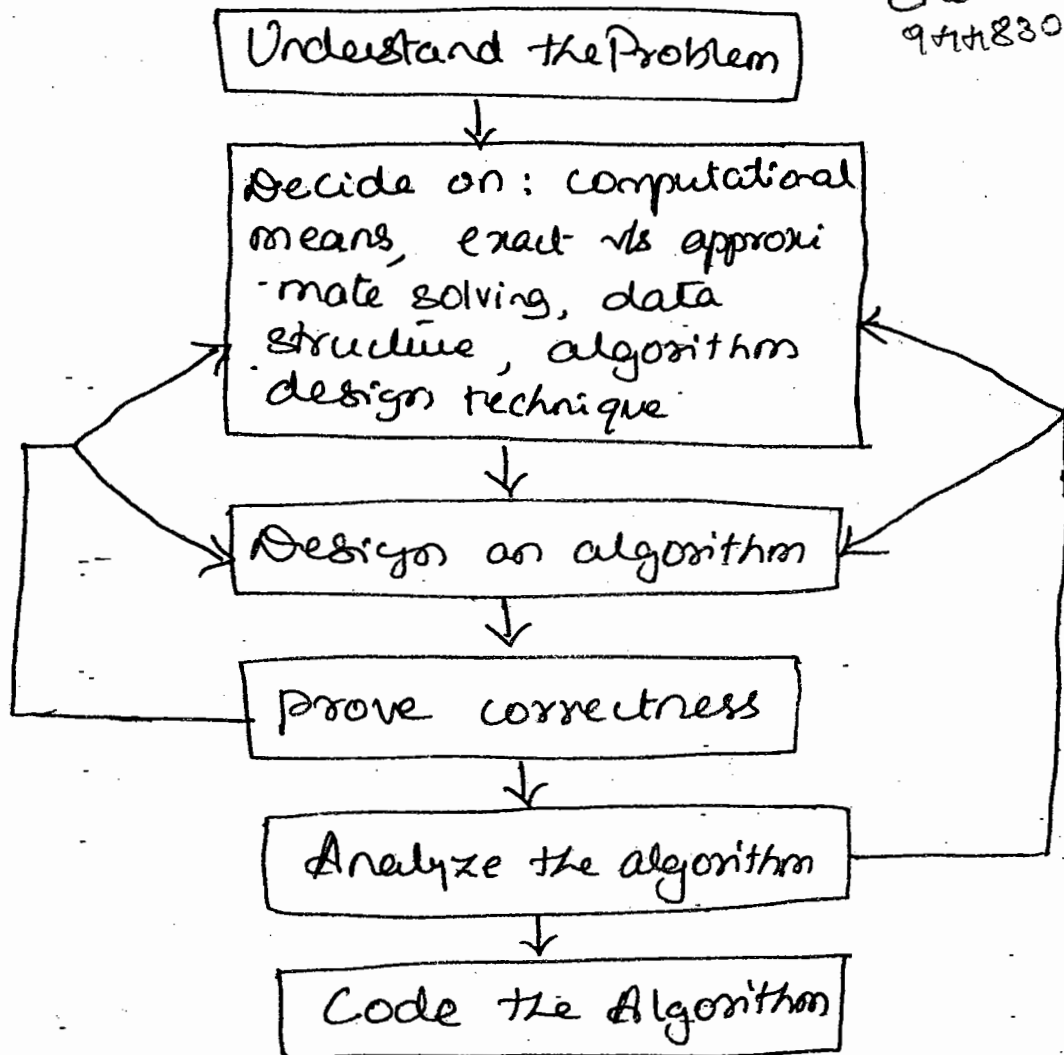 Understand the Problem
Decide on: computational
means, exact v/s approxi
-mate solving, data
structure, algorithm
design technique
Design an algorithm
prove correctness
Analyze the algorithm
Code the Algorithm